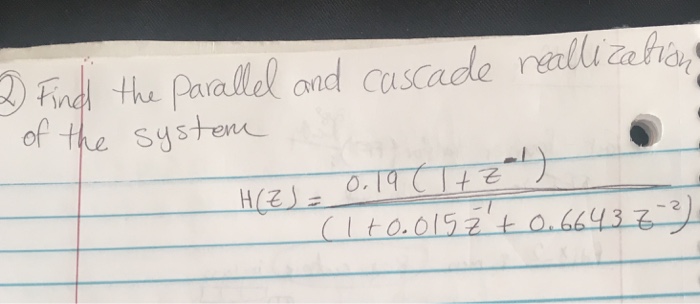 ② Find the parallel and cascade reallization
of the system
H(Z) = 0.19 (1+z⁻¹)
(1+0.015z⁻¹+ 0.6643 z⁻²)